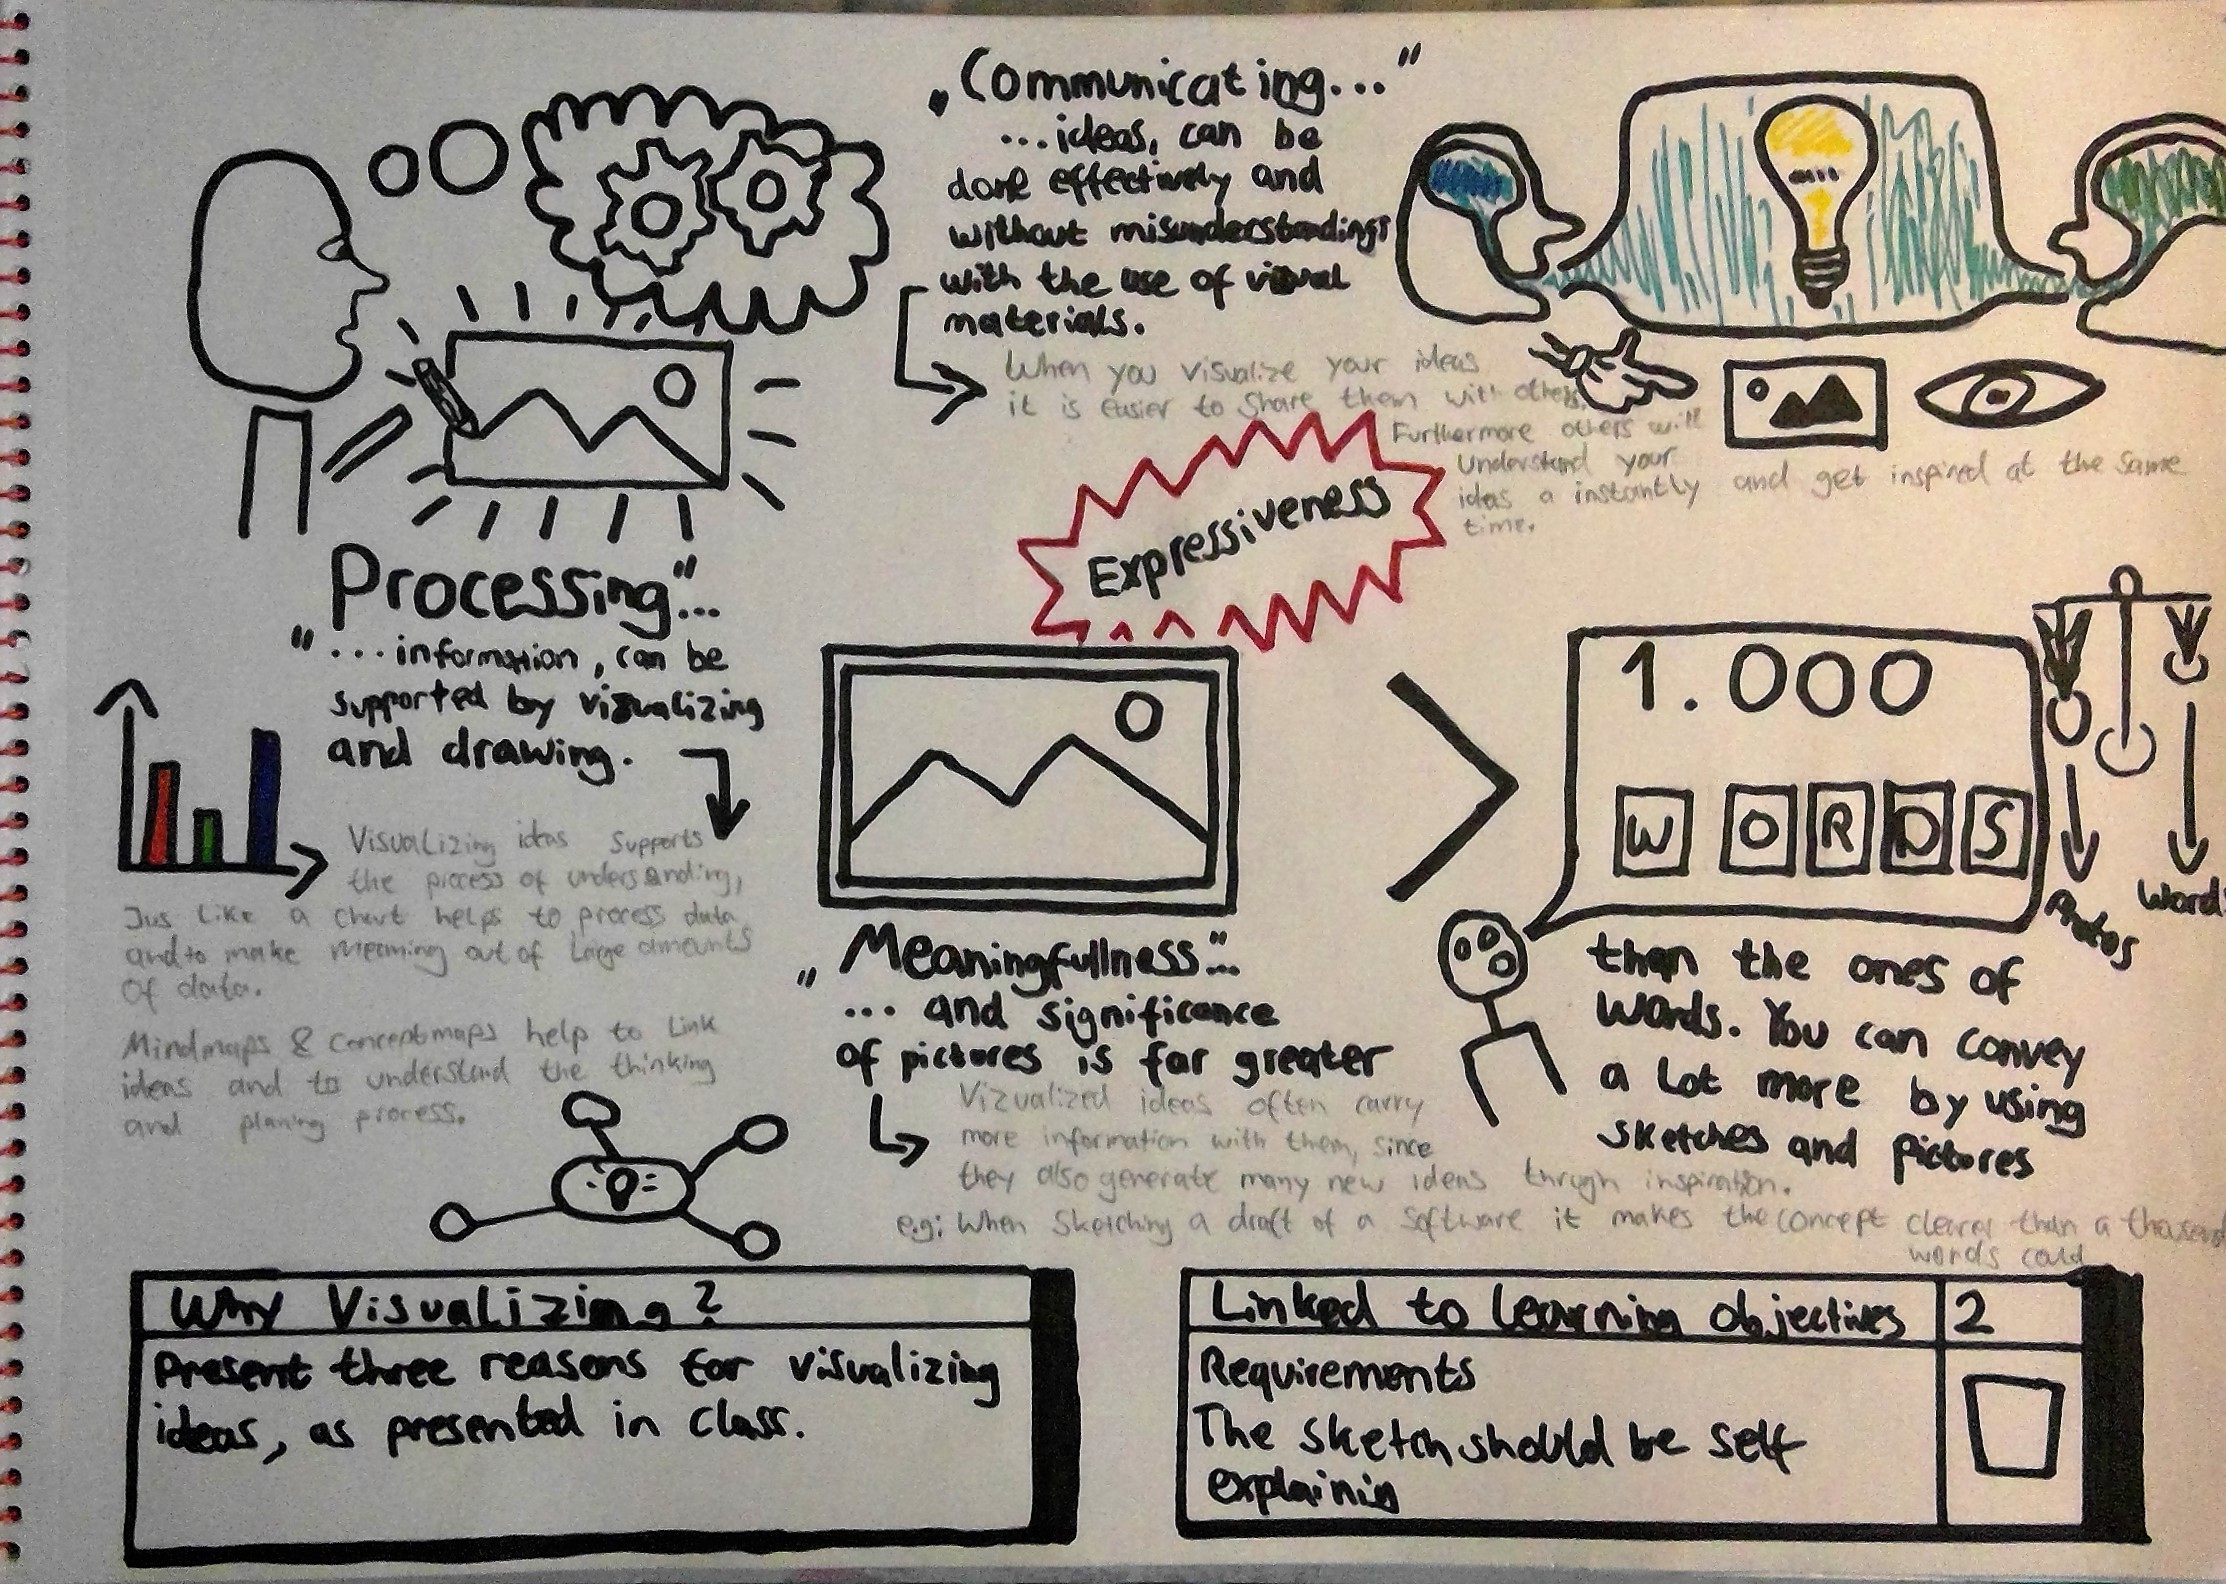 „Communicating..."
...ideas, can be
done effectively and
without misunderstandings
with the use of visual
materials.
When you visualize your ideas
it is easier to share them with others.
Furthermore others will
understand your
ideas a instantly and get inspired at the same
time.
Expressiveness
Processing"...
"...information, can be
supported by vizualizing
and drawing.
Visualizing ideas supports
the process of understanding,
Jus like a chart helps to process data
and to make meaming out of large amounts
of data.
Mindmaps & conceptmaps help to link
ideas and to understand the thinking
and planing process.
1.000
WORDS
Photos
Words
„Meaningfullness"...
... and significance
of pictures is far greater
than the ones of
words. You can convey
a lot more by using
sketches and pictures
Vizualized ideas often carry
more information with them, since
they also generate many new ideas thrugh inspiration.
e.g: When sketching a draft of a software it makes the concept clearer than a thousand
words could
Why Visualizing?
Present three reasons for visualizing
ideas, as presented in class.
Linked to learning objectives 2
Requirements
The sketch should be self
explainig